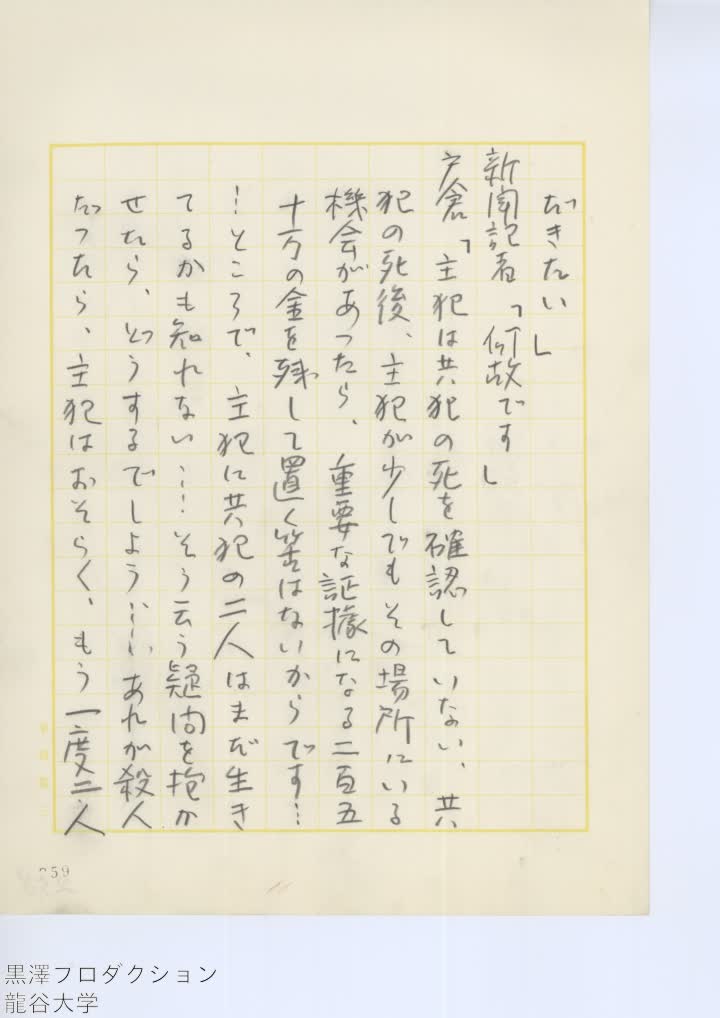 だきたい」
新聞記者「何故です」
戸倉「主犯は共犯の死を確認していない、共
犯の死後、主犯が少しでもその場所にいる
機会があったら、重要な証據になる二百五
十万の金を残して置く筈はないからです…
…ところで、主犯に共犯の二人はまだ生き
てるかも知れない……そう云う疑問を抱か
せたら、どうするでしよう……あれが殺人
だったら、主犯はおそらく、もう一度二人
59
黒澤プロダクション
龍谷大学